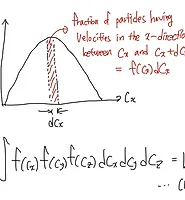 fraction of particles having
velocities in the x-direc
between Cx and Cx+dC
= f(Cx)dCx
Cx
dCx
∫ f(Cx) f(Cy) f(Cz) dCx dCy dCz = 1
... (